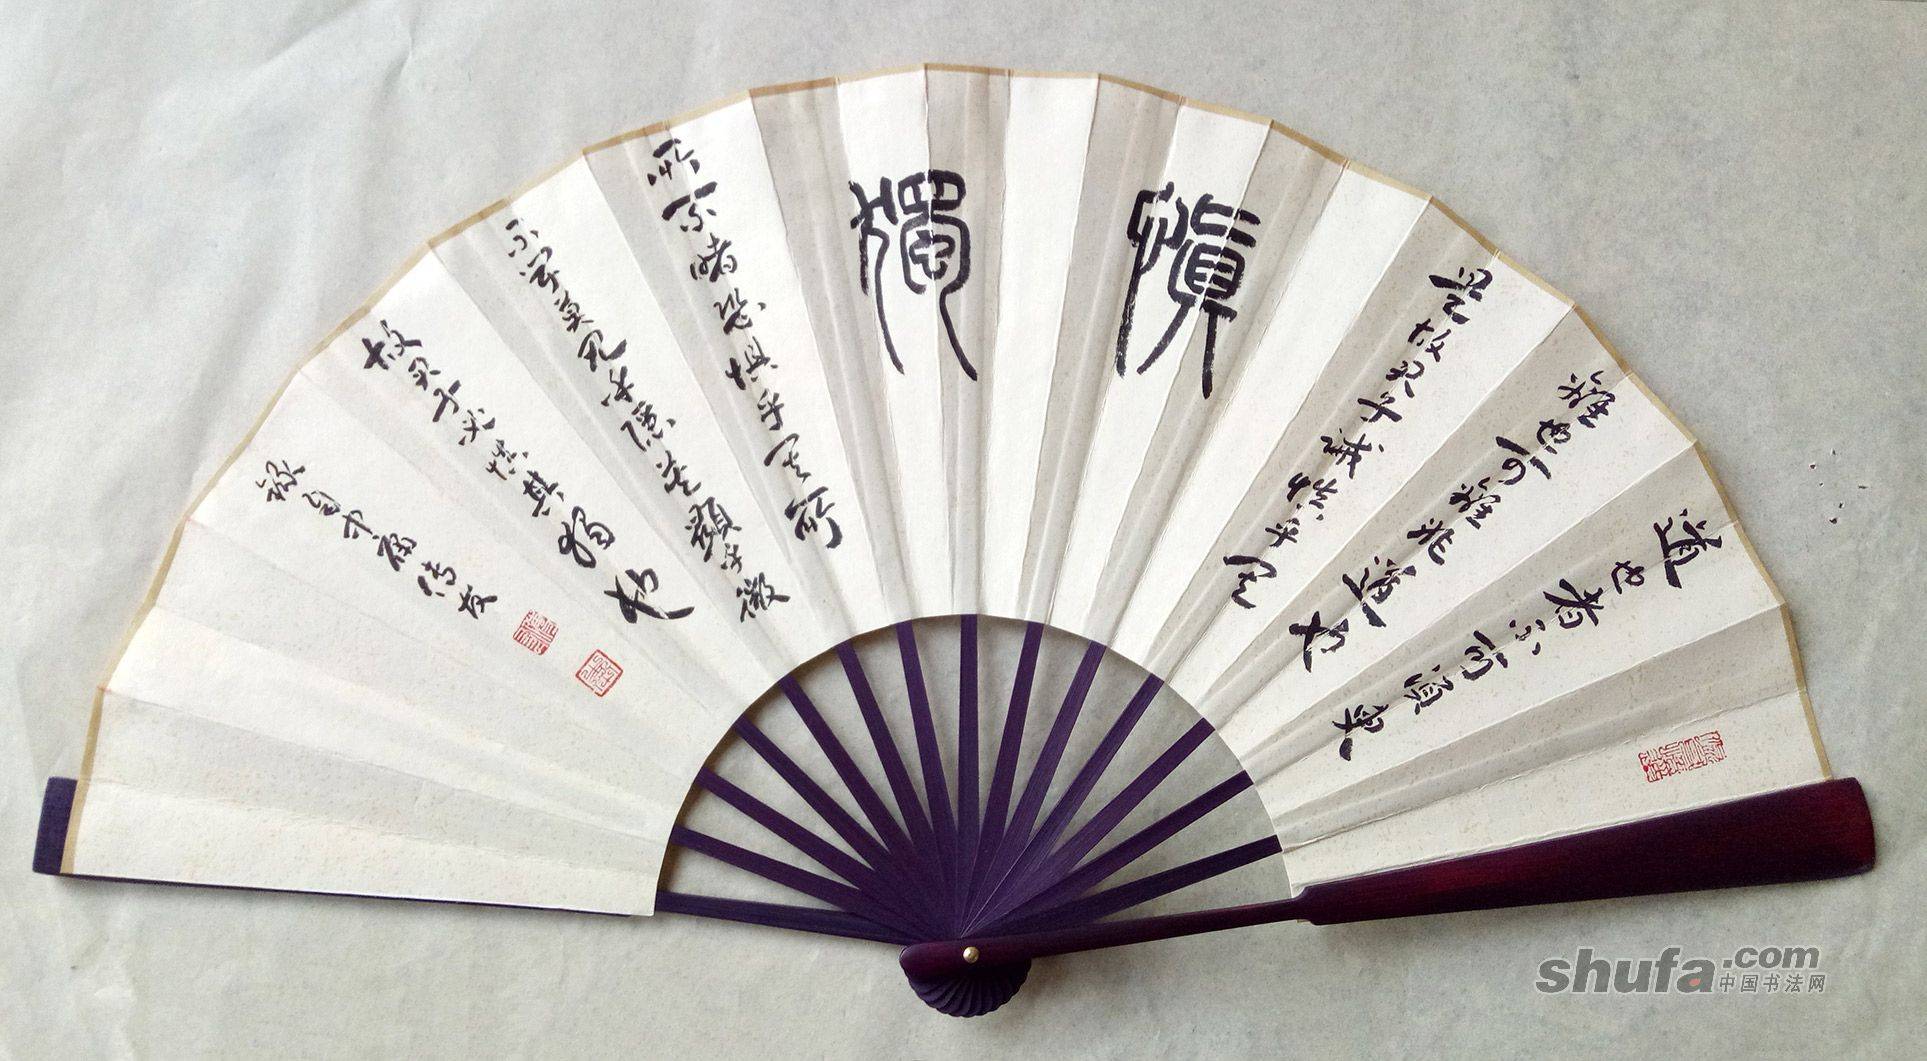 慎獨
道也者不可須臾
離也可離非道也
是故君子誡慎乎其
所不睹恐懼乎其所
不聞莫見乎隱莫顯乎微
故君子必慎其獨也
錄自中庸傳友
shufa.com
中国书法网